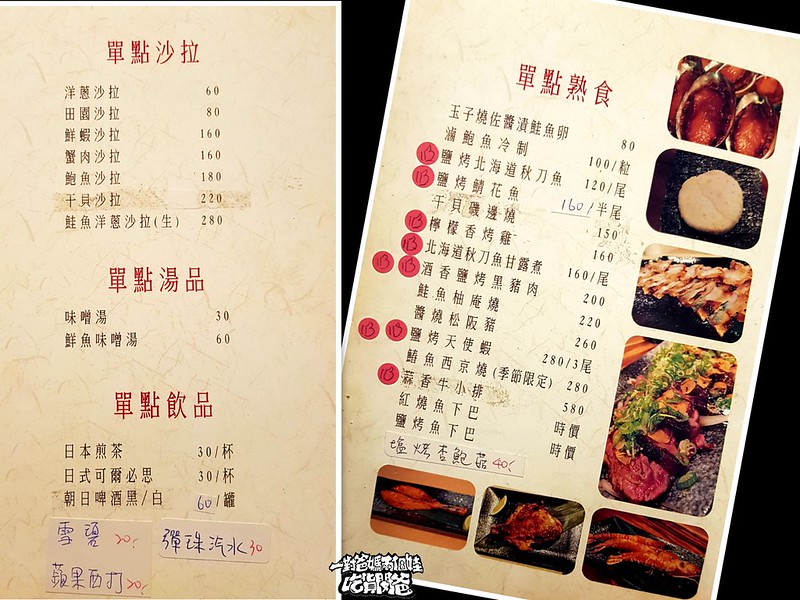 單點沙拉
洋蔥沙拉 60
田園沙拉 80
鮮蝦沙拉 160
蟹肉沙拉 160
鮑魚沙拉 180
干貝沙拉 220
鮭魚洋蔥沙拉(生) 280
單點湯品
味噌湯 30
鮮魚味噌湯 60
單點飲品
日本煎茶 30/杯
日式可爾必思 30/杯
朝日啤酒黑/白 60/罐
雪碧 20.
彈珠汽水30
蘋果西打20.
單點熟食
玉子燒佐醬漬鮭魚卵 80
滷鮑魚冷制 100/粒
鹽烤北海道秋刀魚 120/尾
鹽烤鯖花魚 160/半尾
干貝磯邊燒 150
檸檬香烤雞 160
北海道秋刀魚甘露煮 160/尾
酒香鹽烤黑豬肉 200
鮭魚柚庵燒 220
醬燒松阪豬 260
鹽烤天使蝦 280/3尾
鰆魚西京燒(季節限定) 280
蒜香牛小排 580
紅燒魚下巴 時價
鹽烤魚下巴 時價
塩烤杏鮑菇40.